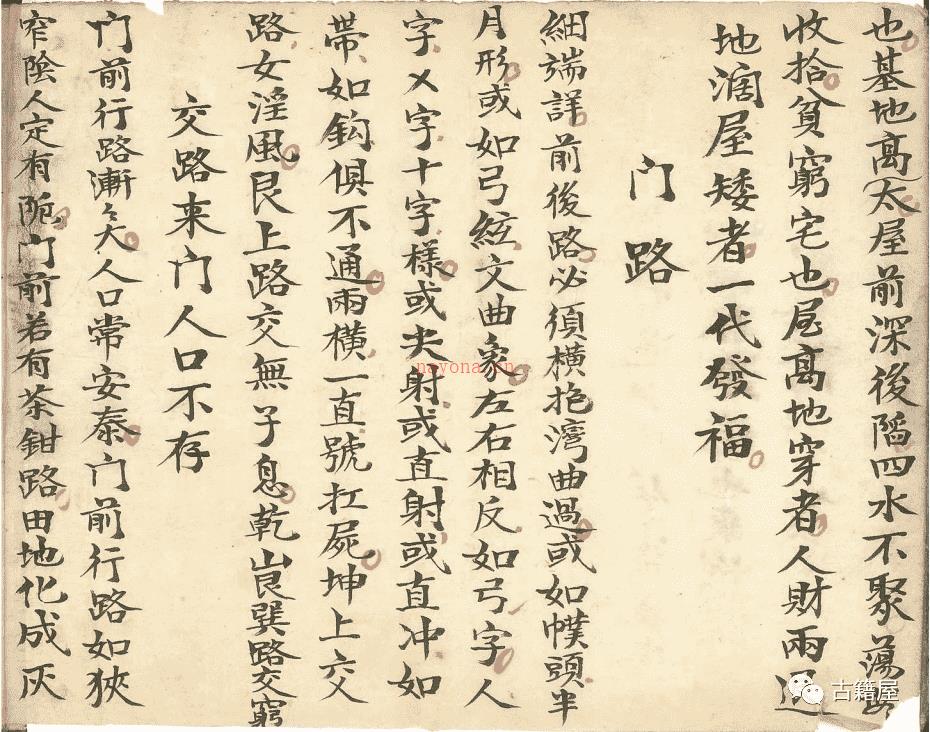 也基地高太屋前深後陷四水不聚蕩
收拾貧窮宅也屋高地穿者人財兩
地濶屋矮者一代發福
门路
細端詳前後路必須橫抱灣曲過或如幞頭半
月形或如弓絃文曲象左右相反如弓字人
字乂字十字樣或尖射或直射或直冲如
帶如鈎俱不通兩橫一直號扛屍坤上交
路女淫風艮上路交無子息乾峎巽路交窮
交路来门人口不存
门前行路漸々大人口常安泰门前行路如狹
窄陰人定有阨门前若有茶鉗路田地化成灰
nayona.cn
古籍屋